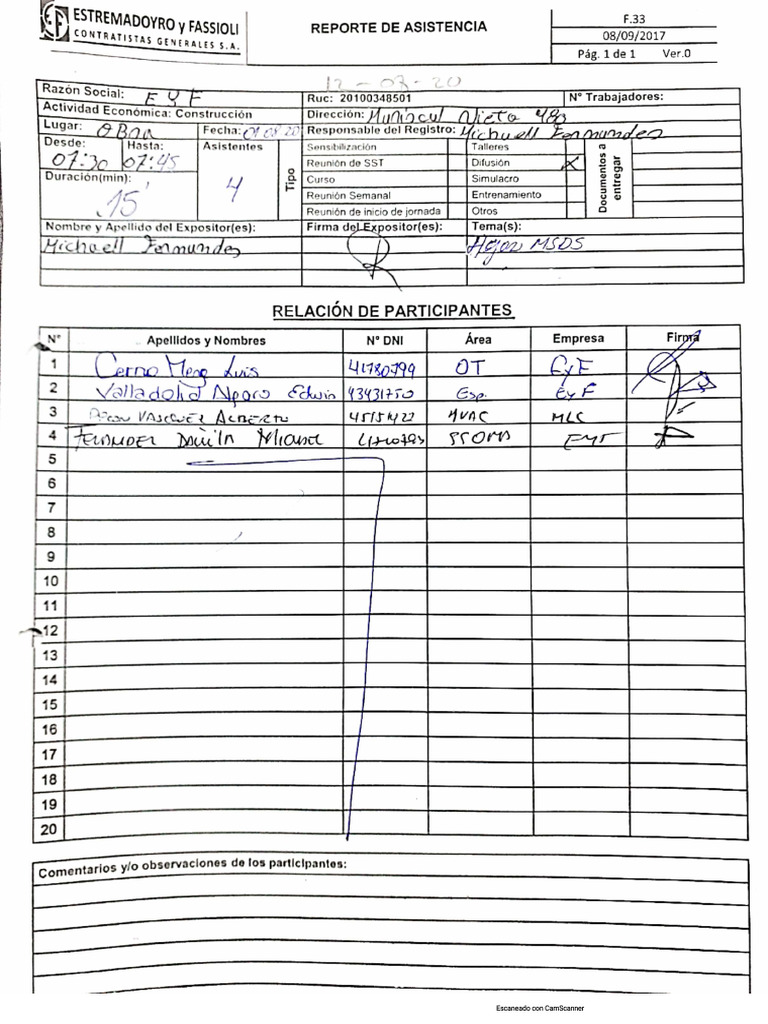 ESTREMADOYRO y FASSIOLI
CONTRATISTAS GENERALES S.A.
REPORTE DE ASISTENCIA
F.33
08/09/2017
Pág. 1 de 1 Ver.0
12-03-20
Razón Social: E y F
Ruc: 20100348501
N° Trabajadores:
Actividad Económica: Construcción
Dirección: Mariscal Nieto 480
Lugar: OBRA
Fecha: 01 08 20
Responsable del Registro: Michaell Fernandes
Desde: 07:30
Hasta: 07:45
Asistentes 4
Duración(min): 15'
Tipo
Sensibilización
Talleres
Reunión de SST
Difusión X
Curso
Simulacro
Reunión Semanal
Entrenamiento
Reunión de inicio de jornada
Otros
Documentos a entregar
Nombre y Apellido del Expositor(es):
Firma del Expositor(es):
Tema(s):
Michaell Fernandes
Hojas MSDS
RELACIÓN DE PARTICIPANTES
N° Apellidos y Nombres N° DNI Área Empresa Firma
1 Luis 41780799 OT EyF
2 Valladolid Edwin 43431750 Esp. EyF
3 VASQUEZ ALBERTO HVAC MLC
4 DAVILA
5
6
7
8
9
10
11
12
13
14
15
16
17
18
19
20
Comentarios y/o observaciones de los participantes:
Escaneado con CamScanner